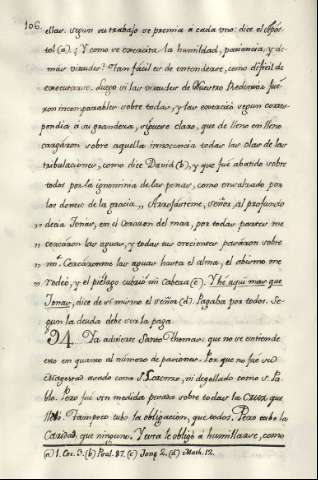 106.
ellas. segun su trabajo se premia á cada uno: dice el Após-
tol (a). ¿Y como se exercita la humildad, paciencia, y de-
más virtudes? Tan facil es de entenderse, como dificil de
executarse. Luego si las virtudes de Nuestro Redentor fue-
ron incomparables sobre todas, y las exercitó segun corres-
pondia á su grandeza, siguese claro, que de lleno en lleno
cargáron sobre aquella innocencia todas las olas de las
tribulaciones, como dice David (b), y que fué abatido sobre
todos por la ignominia de las penas, como ensalzado por
los dones de la gracia. „ Arrojásteme, señor, al profundo
„ decia Jonás, en el corazon del mar, por todas partes me
„ cercáron las aguas, y todas tus crecientes pasáron sobre
„ mi. Cercáronme las aguas hasta el alma, el abismo me
„ rodeó, y el piélago cubrió mi cabeza (c). Y hé aqui mas que
Jonás, dice de sí mismo el señor (d). Pagaba por todos. Se-
gun la deuda debe ser la paga.
34. Ya advierte Santo Thomas: que no se entiende
eso en quanto al número de pasiones. Por que no fué su
Magestad asado como S. Lorenzo, ni degollado como S. Pa-
blo. Pero fué sin medida penosa sobre todas la Cruz que
llevó. Tampoco tubo la obligacion, que todos. Pero tubo la
Caridad, que ninguno. Y esta le obligó á humillarse, como
(a) 1. Cor. 3. (b) Psal. 87. (c) Jonæ 2. (d) Math. 12.